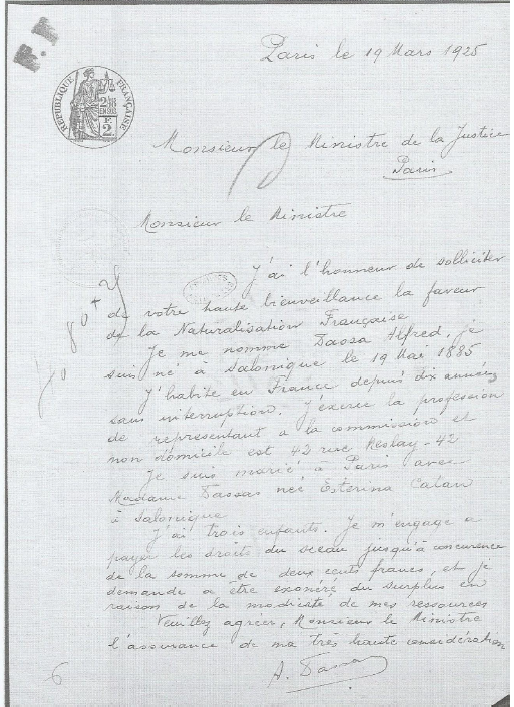 Paris le 19 Mars 1925
RÉPUBLIQUE FRANÇAISE
Monsieur le Ministre de la Justice
Paris
Monsieur le Ministre
J'ai l'honneur de solliciter
de votre haute bienveillance la faveur
de la Naturalisation Française
Je me nomme Alfred, je
suis né à Salonique le 19 Mai 1885
J'habite en France depuis dix années
sans interruption. J'exerce la profession
de representant a la commission et
mon domicile est 42 rue Meslay - 42
Je suis marié à Paris avec
Madame née Esterina
à Salonique
J'ai trois enfants. Je m'engage a
payer les droits du sceau jusqu'à concurence
de la somme de deux cents francs, et je
demande a être exonéré du surplus en
raison de la modristé de mes ressources
Veuillez agréer, Monsieur le Ministre
l'assurance de ma très haute considération
6